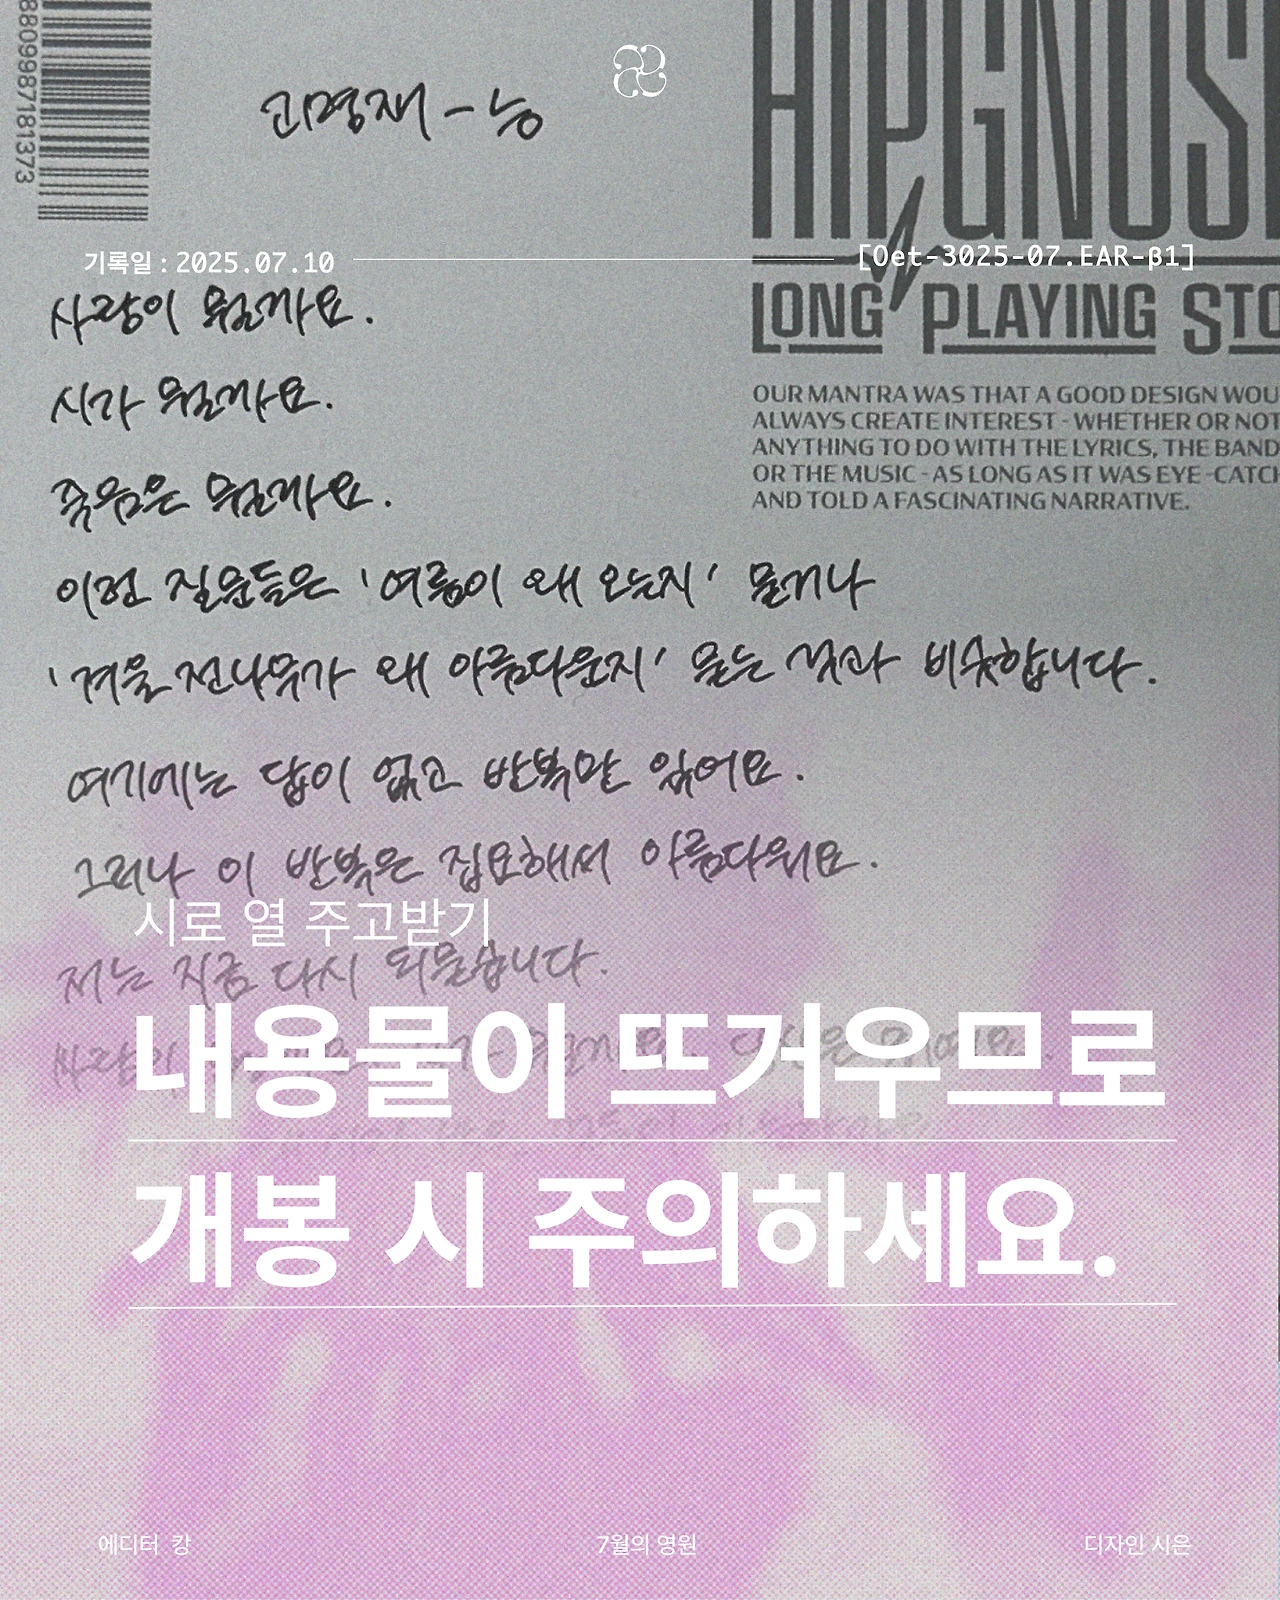 8809987181373
고명재 - 능
HIPGNOSI
기록일 : 2025.07.10
[Oet-3025-07.EAR-β1]
LONG PLAYING STO
사랑이 뭘까요.
시가 뭘까요.
죽음은 뭘까요.
이런 질문들은 '여름이 왜 오는지' 묻거나
'겨울 전나무가 왜 아름다운지' 묻는 것과 비슷합니다.
여기에는 답이 없고 반복만 있어요.
그러나 이 반복은 집요해서 아름다워요.
저는 지금 다시 되묻습니다.
OUR MANTRA WAS THAT A GOOD DESIGN WOU
ALWAYS CREATE INTEREST - WHETHER OR NOT
ANYTHING TO DO WITH THE LYRICS, THE BAND
OR THE MUSIC - AS LONG AS IT WAS EYE-CATCH
AND TOLD A FASCINATING NARRATIVE.
시로 열 주고받기
내용물이 뜨거우므로
개봉 시 주의하세요.
에디터 캉
7월의 영원
디자인 시은